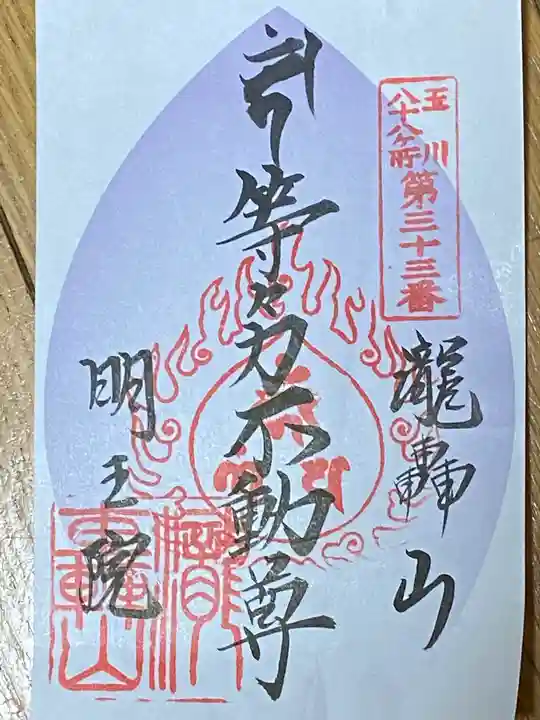 玉川
八十八ヶ所
第三十三番
瀧轟山
等々力不動尊
明王院
瀧轟山